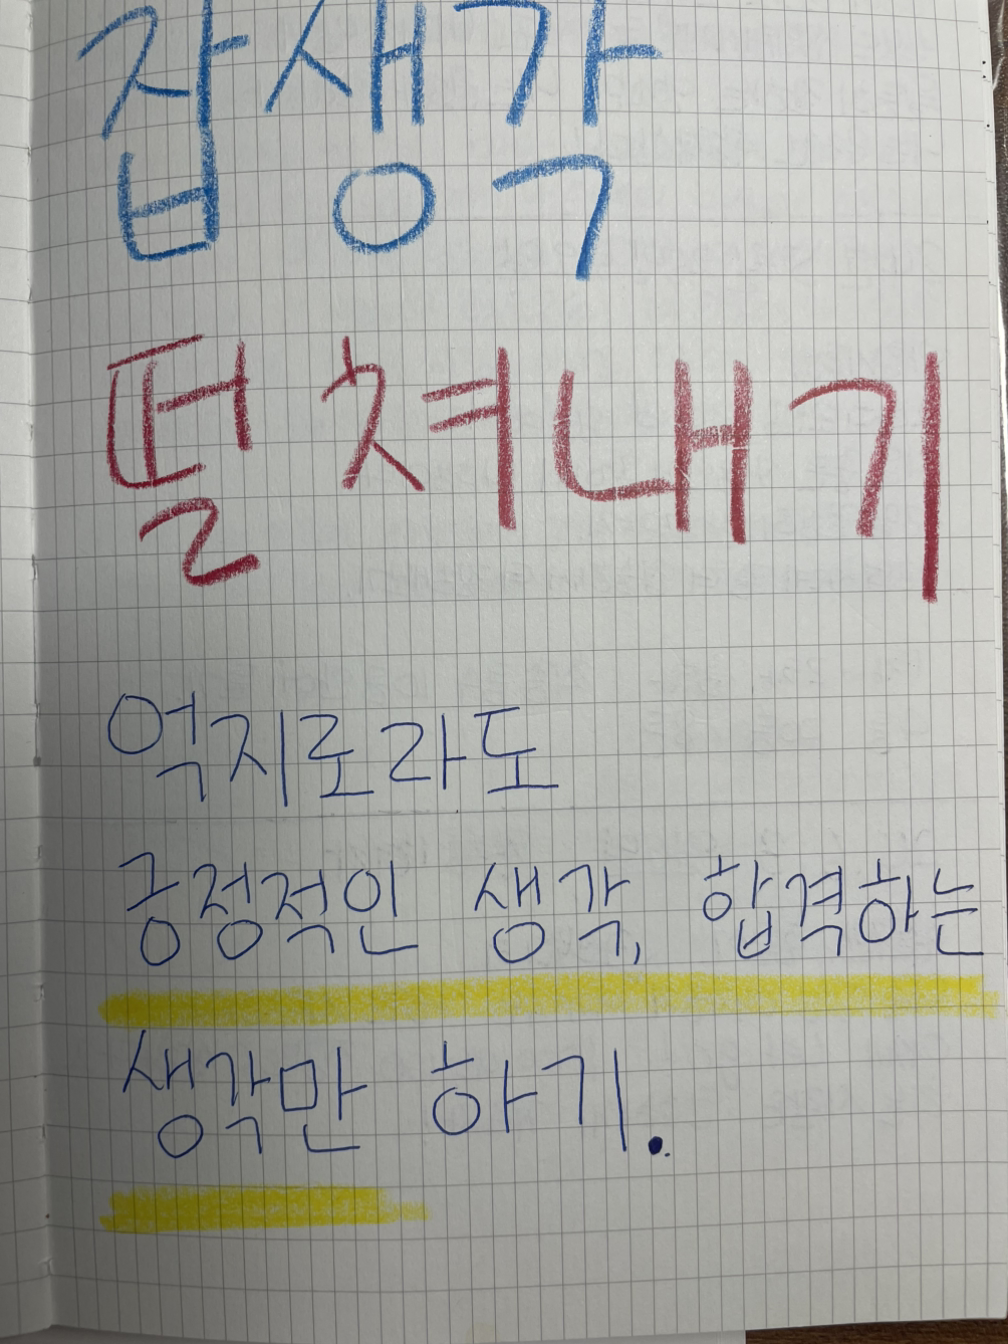 잡생각
떨쳐내기
억지로라도
긍정적인 생각, 합격하는
생각만 하기.